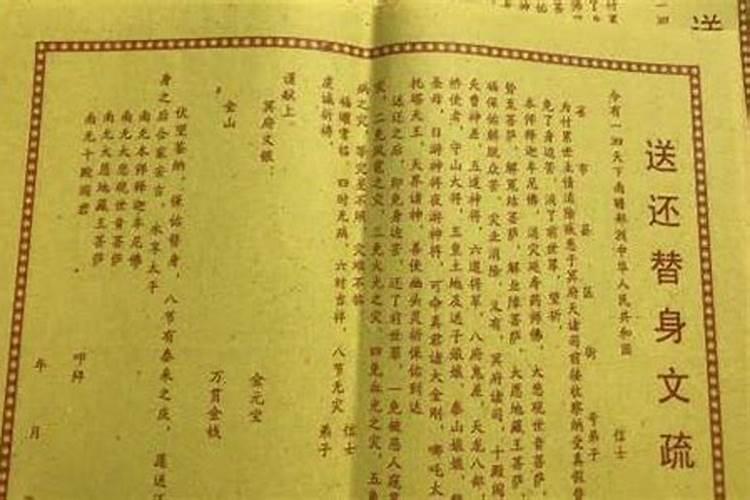 送还替身文疏
今有一四天下南赡部洲中华人民共和国
省 市 县 区 街 号弟子 信士
为付累世
免了身边苦,消了前世罪,望祈
本师释迦牟尼佛,消灾延寿药师佛,大悲观世音菩萨
势至菩萨,解冤结菩萨,解业障菩萨,大愿地藏王菩萨,
福保佑解脱众苦,灾业消除,又有,冥府诸司,十殿阎
天曹神差,五道神将,六道将军,八府鬼差,天龙八部,
桥使者,守山大将,五皇土地及送子娘娘,泰山娘娘,
圣母,日游神将夜游神将,可命真君诸大金刚,哪吒太
托塔天王,天界诸神,善使幽头灵祈保佑到达
送还之后,即免身边苦,还了前世罪,一免被恶人
二免风雹之灾,三免火光之灾,四免血光之灾,五
病之灾,等灾是不照,灾难不临
福曜常临 四时无病,六时吉祥,八节无灾 信士
虔诚祈祷, 弟子
谨献上
冥府文银, 金元宝
金山 万贯金钱
伏望鉴纳,保佑替身,八节有泰来之庆,愿送还
身之后合家安吉,永享太平
南无本师释迦牟尼佛
南无大悲观世音菩萨
南无大愿地藏王菩萨
南无十殿阎君
叩拜
年 月
送